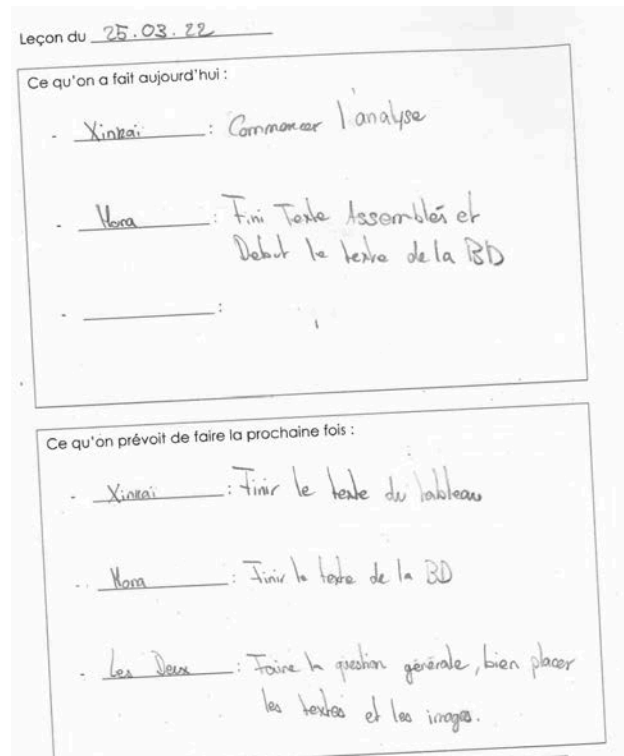 Leçon du 25.03.22
Ce qu'on a fait aujourd'hui :
- Xinkai : Commencer l'analyse
- Nora : Fini Texte Assemblés et
Debut le texte de la BD
- :
Ce qu'on prévoit de faire la prochaine fois :
- Xinkai : Finir le texte du tableau
- Nora : Finir le texte de la BD
- Les Deux : Faire la question générale, bien placer
les textes et les images.